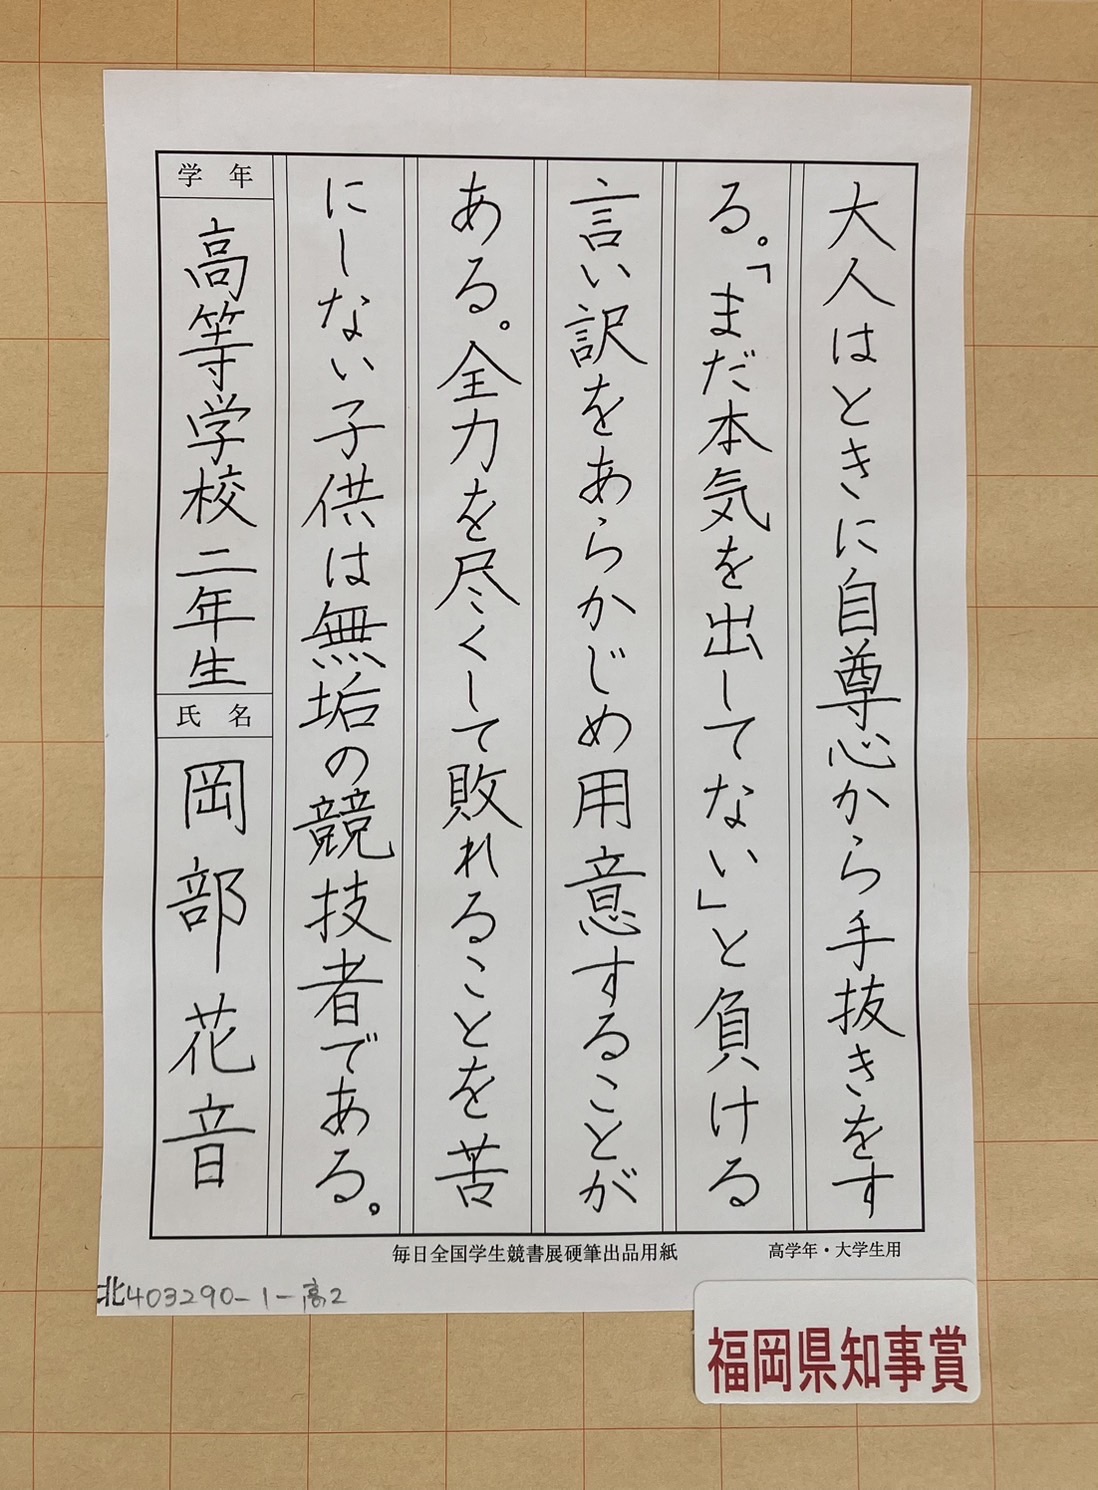 大人はときに自尊心から手抜きをす
る。「まだ本気を出してない」と負ける
言い訳をあらかじめ用意することが
ある。全力を尽くして敗れることを苦
にしない子供は無垢の競技者である。
学年
高等学校二年生
氏名
岡部花音
毎日全国学生競書展硬筆出品用紙
高学年・大学生用
北403290-1-高2
福岡県知事賞